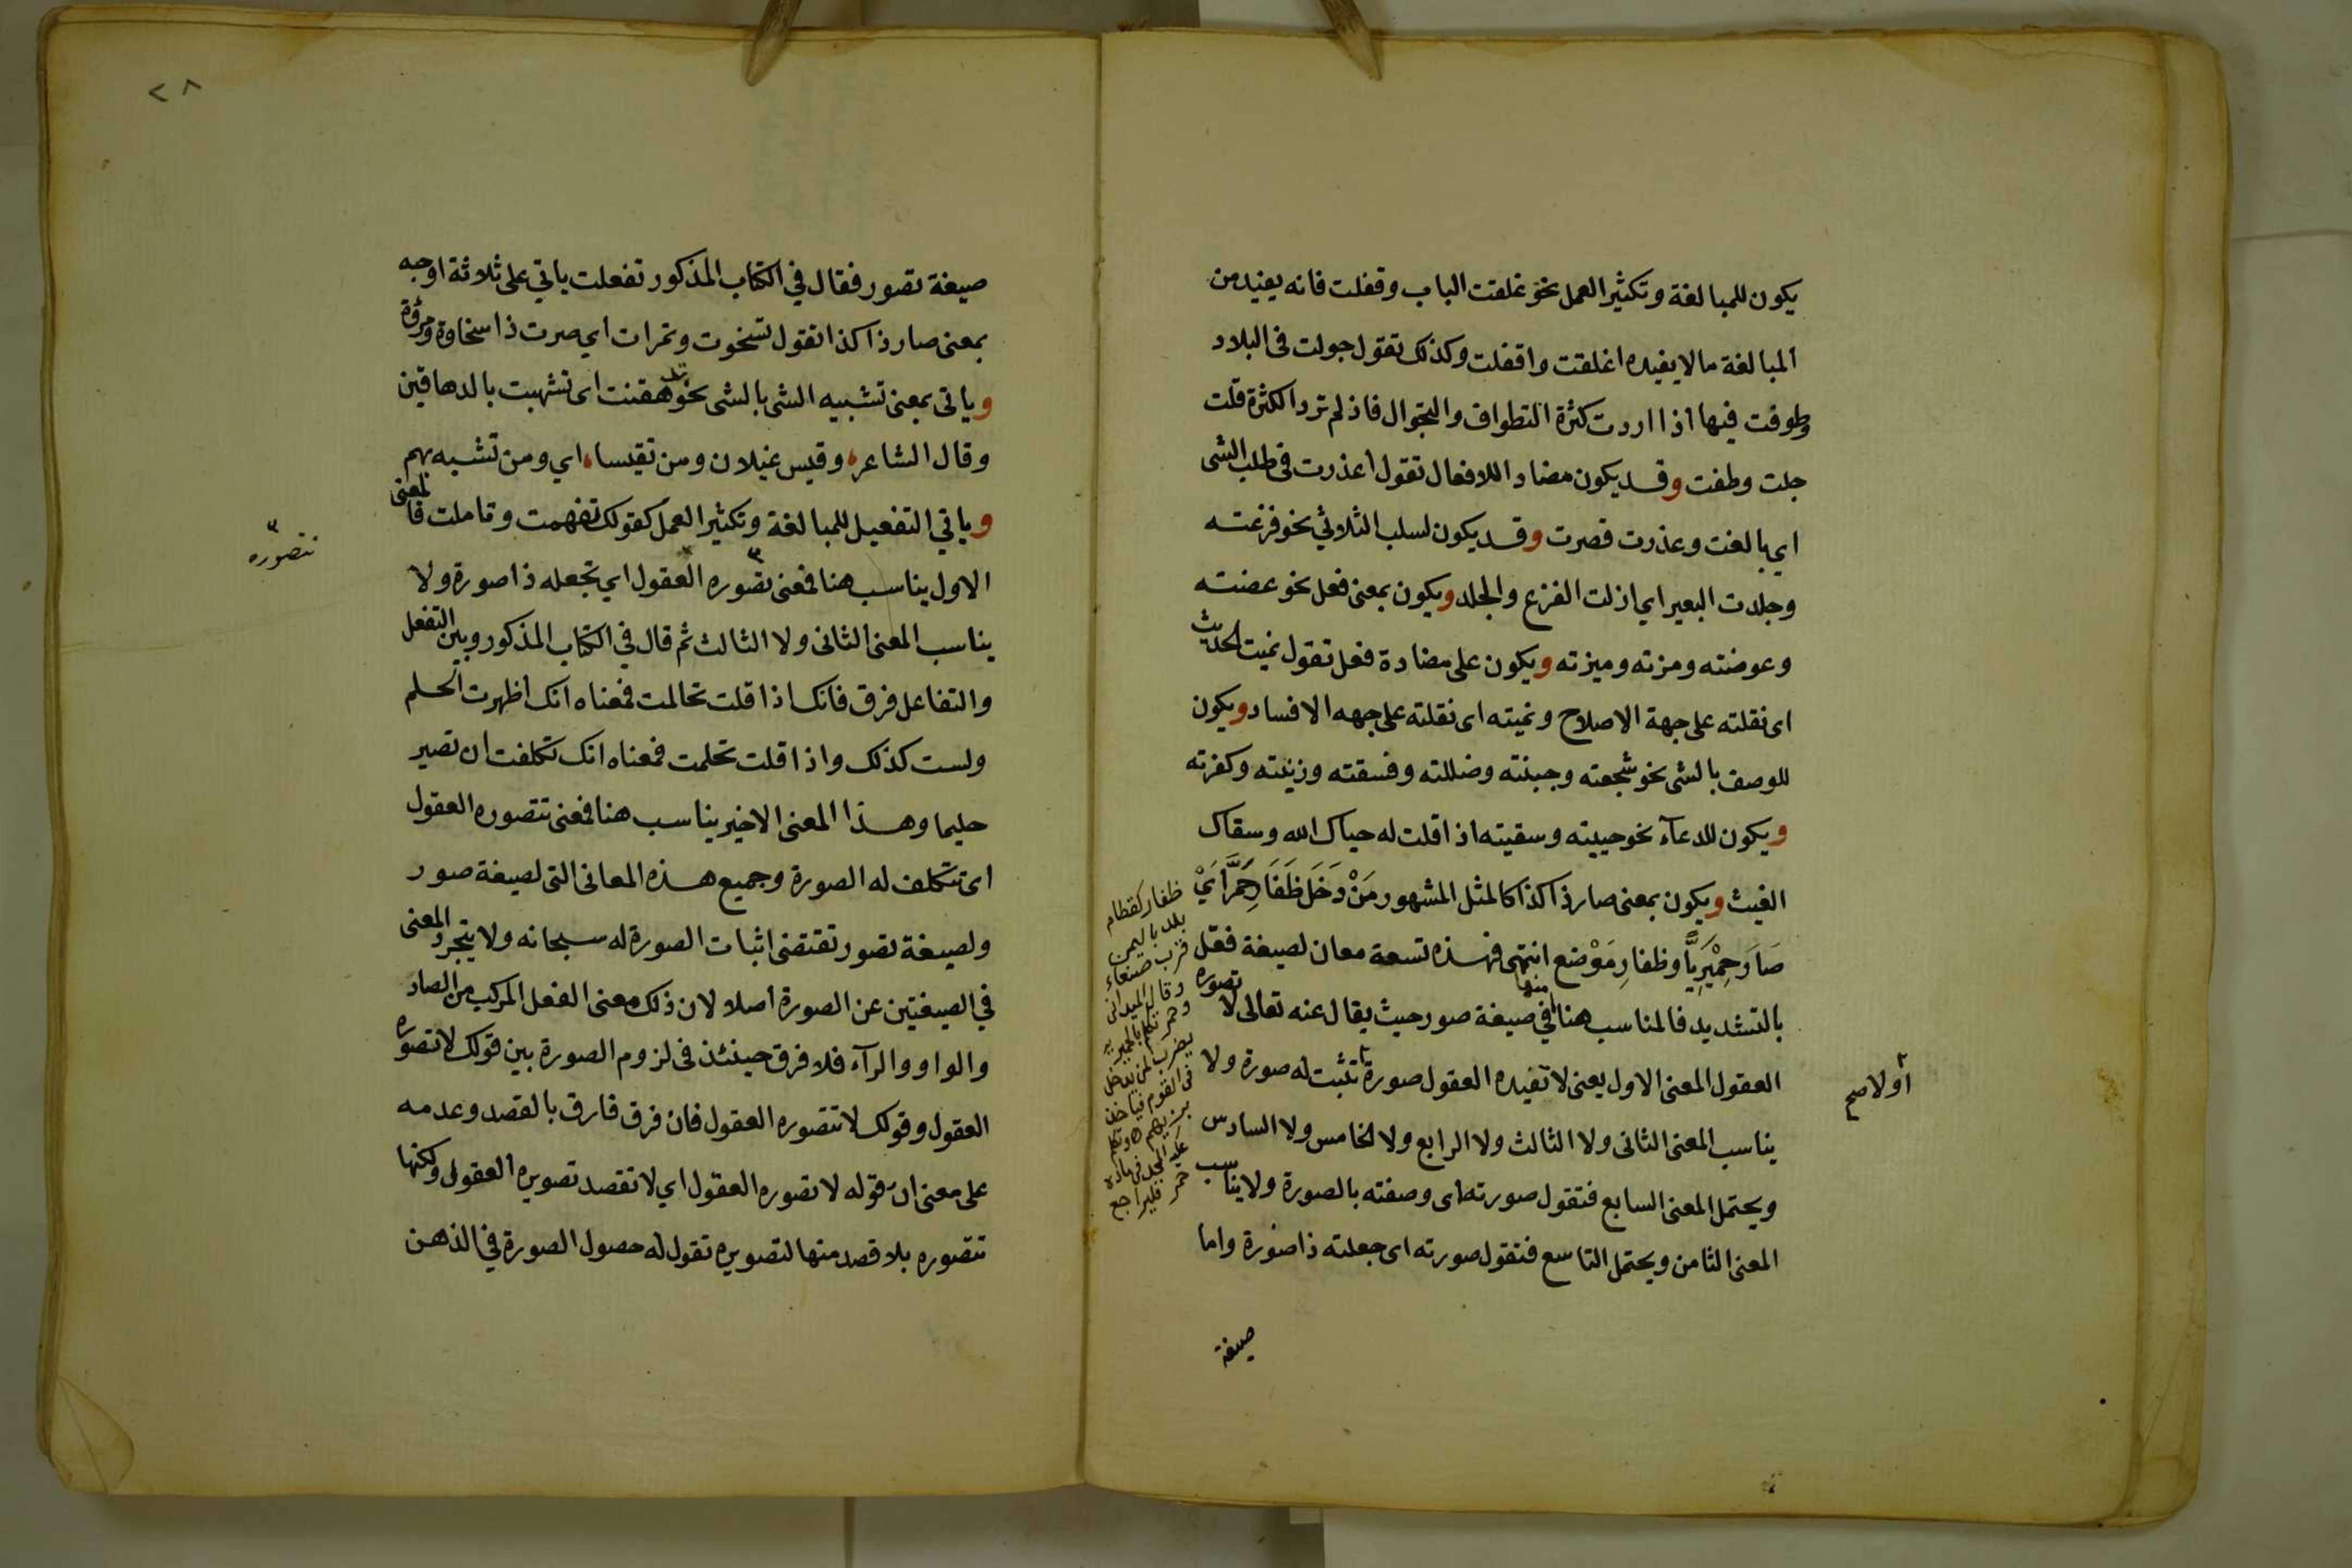 يكون للمبالغة وتكثير العمل نحو غلقت الباب وقفلت فانه يفيد من
المبالغة ما لا يفيده اغلقت واقفلت وكذلك تقول جولت فى البلاد
وطوفت فيها اذا اردت كثرة التطواف والتجوال فاذ لم ترد الكثرة قلت
جلت وطفت وقد يكون مضادا للافعال تقول اعذرت فى طلب الشى
اي بالغت وعذرت قصرت وقد يكون لسلب الثلاثي نحو فزعته
وجلدت البعير اي ازلت الفزع والجلد ويكون بمعنى فعل نحو عضته
وعوضته ومزته وميزته ويكون على مضادة فعل تقول نميت الحديث
اى نقلته على جهة الاصلاح ونميته اى نقلته على جهه الافساد ويكون
للوصف بالشى نحو شجعته وجبنته وضللته وفسقته وزنيته وكفرته
ويكون للدعآء نحو حييته وسقيته اذا قلت له حياك الله وسقاك
الغيث ويكون بمعنى صار ذا كذا كالمثل المشهور مَنْ دَخَلَ ظَفَارِ حَمَّرَ أيْ
صَارَ حِمْيَرِيًّا وظفارِ مَوْضع انتهى فهذه تسعة معان لصيغة فعّل
بالتشديد فالمناسب هنا منها في صيغة صور حيث يقال عنه تعالى لا تصوره
العقول المعنى الاول يعنى لا تفيده العقول صورة تثبت له صورة ولا
يناسب المعنى الثانى ولا الثالث ولا الرابع ولا الخامس ولا السادس
ويحتمل المعنى السابع فتقول صورته اى وصفته بالصورة ولا يناسب
المعنى الثامن ويحتمل التاسع فتقول صورته اى جعلته ذا صورة واما
صيغة
أولا صح
ظفار كقطام
بلد باليمن
قرب صنعاء
وقال الميدانى
وحمر تكلم بالحميرية
يضرب لمن يدخل
فى القوم فياخذ
بزيهم
فليراجع
٢٨
صيغة تصور فقال في الكتاب المذكور تفعلت ياتي على ثلاثة اوجه
بمعنى صار ذا كذا تقول تسخوت وتمرات اي صرت ذا سخاوة ومرؤة
وياتى بمعنى تشبيه الشى بالشى نحو تدهقنت اى تشبهت بالدهاقين
وقال الشاعر وقيس عيلان ومن تقيسا اي ومن تشبه بهم
وياتي التفعيل للمبالغة وتكثير العمل كقولك تفهمت وتاملت فالمعنى
الاول يناسب هنا فمعنى تصوره العقول اي تجعله ذا صورة ولا
يناسب المعنى الثانى ولا الثالث ثم قال في الكتاب المذكور وبين التفعل
والتفاعل فرق فانك اذا قلت تحالمت فمعناه انك اظهرت الحلم
ولست كذلك واذا قلت تحلمت فمعناه انك تكلفت ان تصير
حليما وهذا المعنى الاخير يناسب هنا فمعنى تتصوره العقول
اى تتكلف له الصورة وجميع هذه المعانى التى لصيغة صور
ولصيغة تصور تقتضى اثبات الصورة له سبحانه ولا يتجرد المعنى
في الصيغتين عن الصورة اصلا لان ذلك معنى الفعل المركب من الصاد
والواو والرآء فلا فرق حينئذ فى لزوم الصورة بين قولك لا تصوره
العقول وقولك لا تتصوره العقول فان فرق فارق بالقصد وعدمه
على معنى ان قوله لا تصوره العقول اي لا تقصد تصويره العقول ولكنها
تتصوره بلا قصد منها لتصويره تقول له حصول الصورة في الذهن
تتصوره